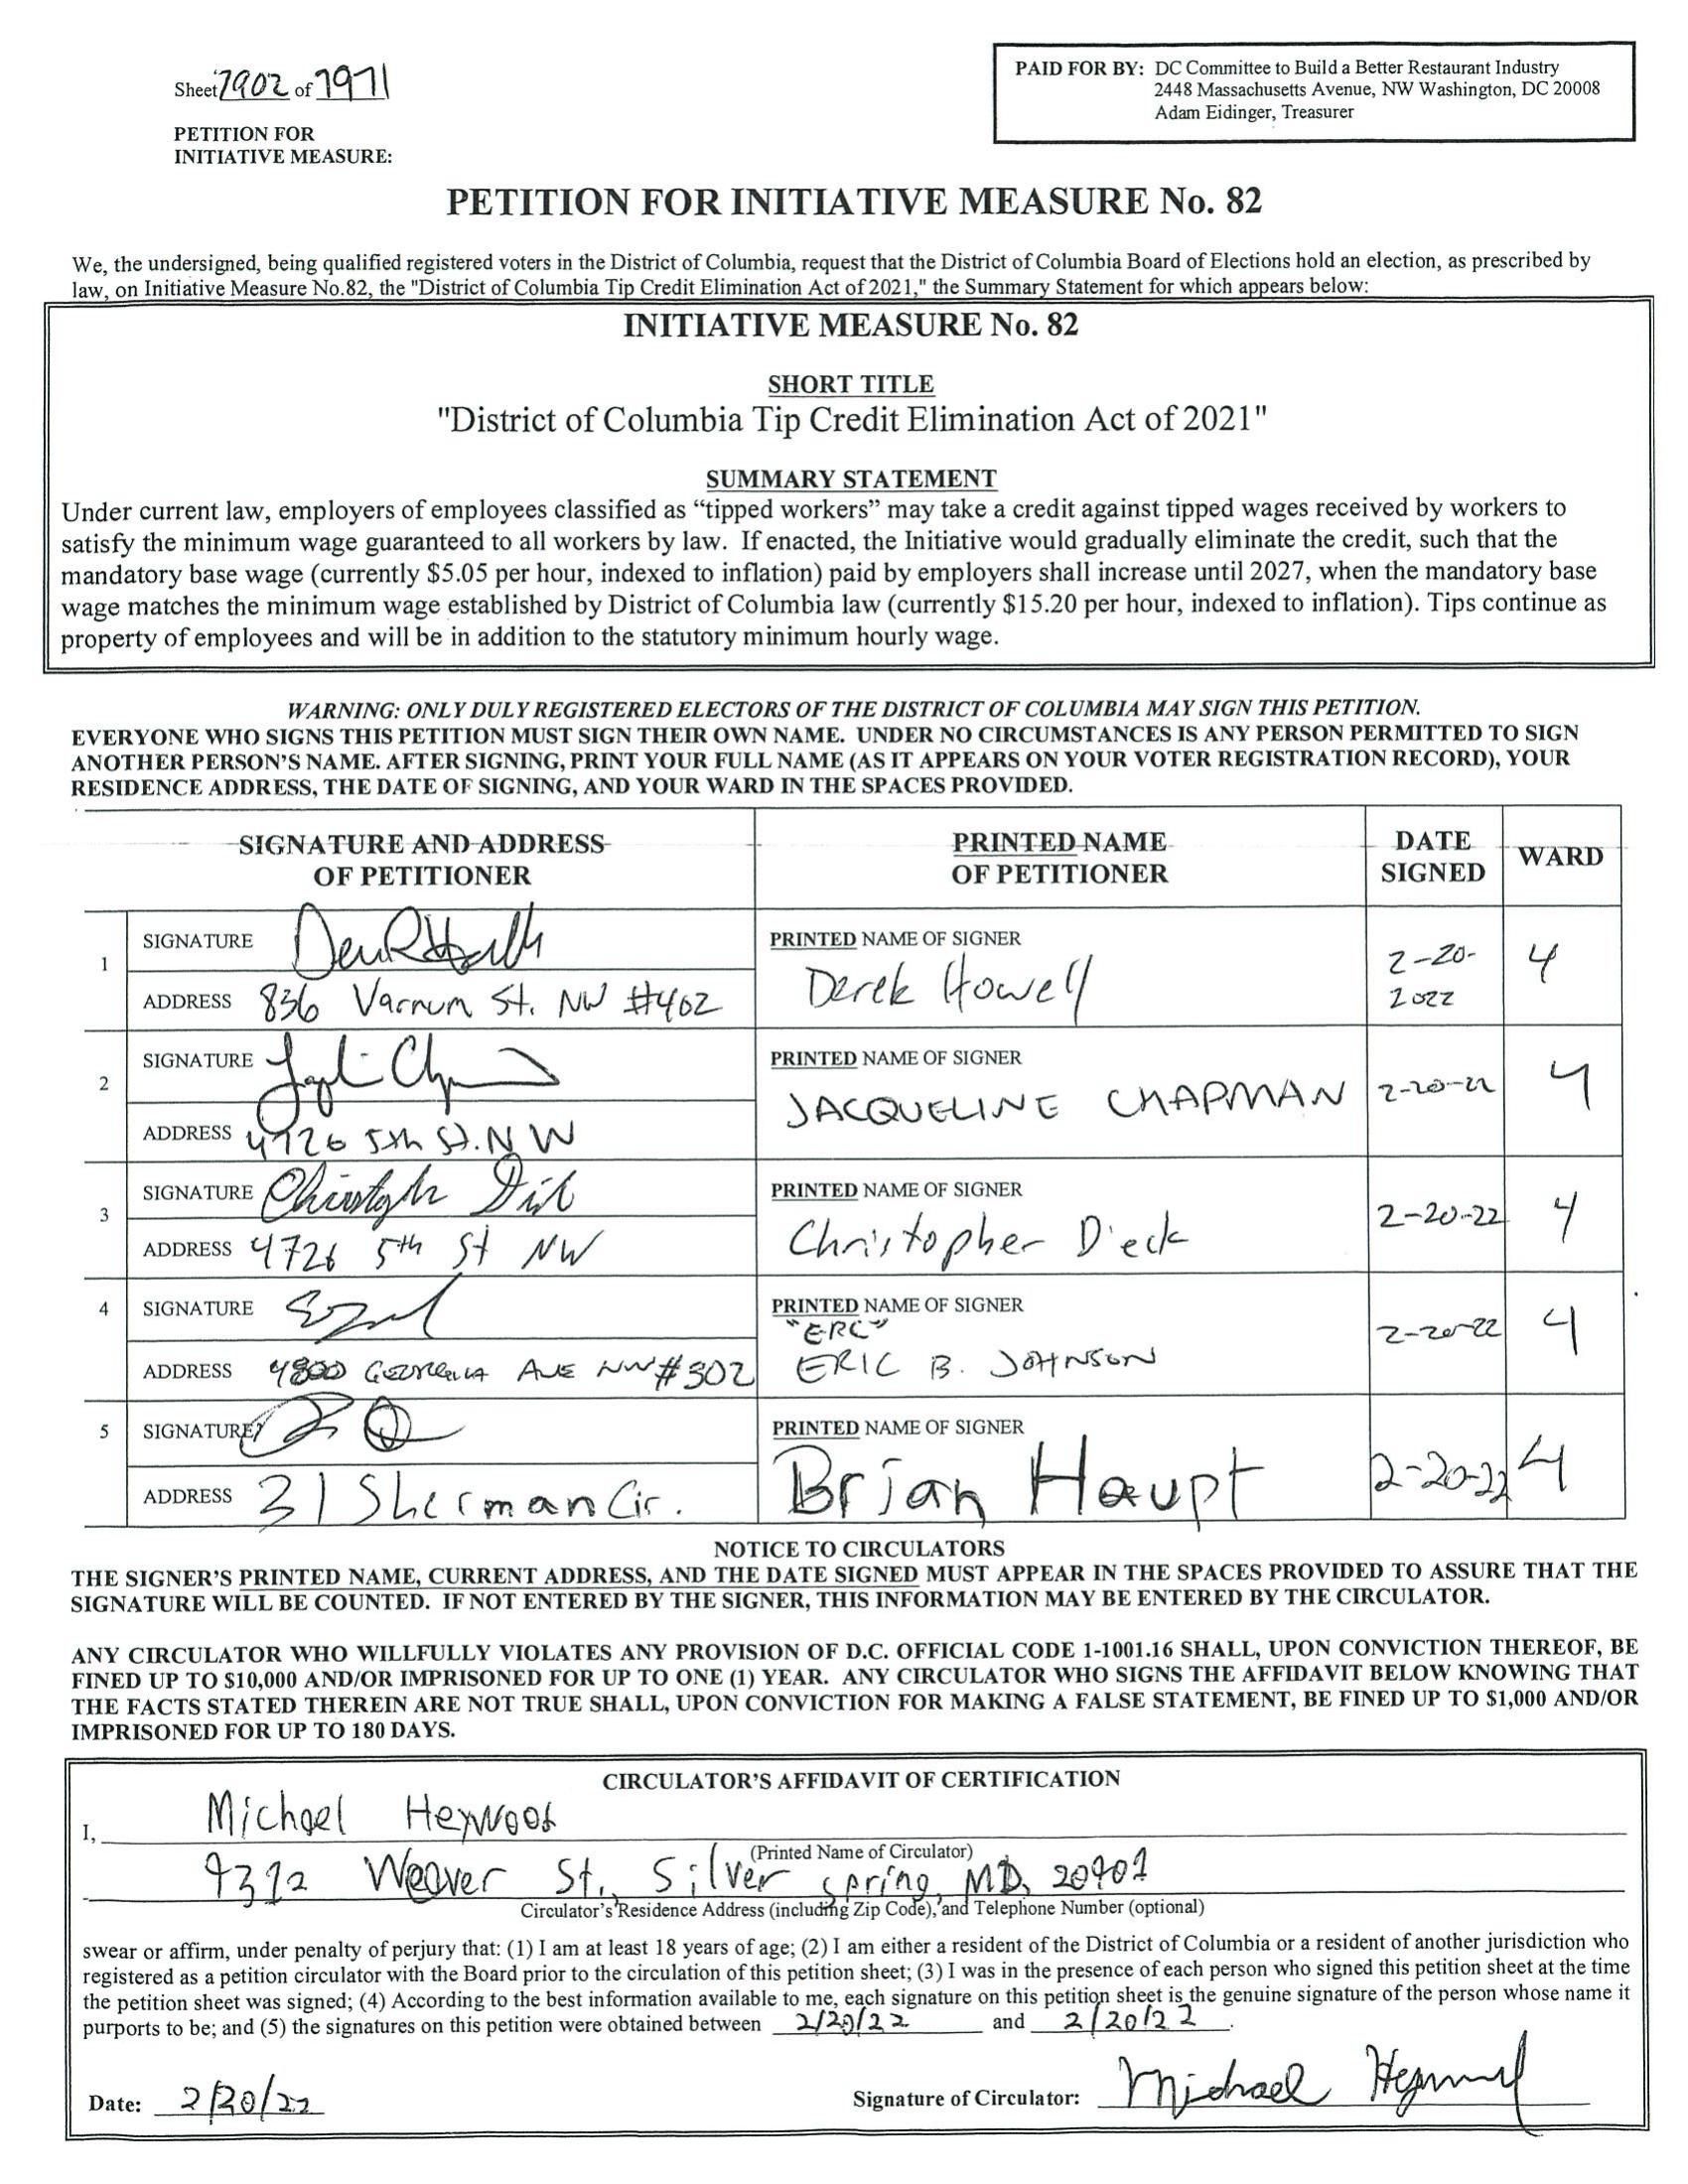 Sheet 7902 of 7971
PAID FOR BY: DC Committee to Build a Better Restaurant Industry
2448 Massachusetts Avenue, NW Washington, DC 20008
Adam Eidinger, Treasurer
PETITION FOR
INITIATIVE MEASURE:
PETITION FOR INITIATIVE MEASURE No. 82
We, the undersigned, being qualified registered voters in the District of Columbia, request that the District of Columbia Board of Elections hold an election, as prescribed by
law, on Initiative Measure No.82, the "District of Columbia Tip Credit Elimination Act of 2021," the Summary Statement for which appears below:
INITIATIVE MEASURE No. 82
SHORT TITLE
"District of Columbia Tip Credit Elimination Act of 2021"
SUMMARY STATEMENT
Under current law, employers of employees classified as “tipped workers” may take a credit against tipped wages received by workers to
satisfy the minimum wage guaranteed to all workers by law. If enacted, the Initiative would gradually eliminate the credit, such that the
mandatory base wage (currently $5.05 per hour, indexed to inflation) paid by employers shall increase until 2027, when the mandatory base
wage matches the minimum wage established by District of Columbia law (currently $15.20 per hour, indexed to inflation). Tips continue as
property of employees and will be in addition to the statutory minimum hourly wage.
WARNING: ONLY DULY REGISTERED ELECTORS OF THE DISTRICT OF COLUMBIA MAY SIGN THIS PETITION.
EVERYONE WHO SIGNS THIS PETITION MUST SIGN THEIR OWN NAME. UNDER NO CIRCUMSTANCES IS ANY PERSON PERMITTED TO SIGN
ANOTHER PERSON'S NAME. AFTER SIGNING, PRINT YOUR FULL NAME (AS IT APPEARS ON YOUR VOTER REGISTRATION RECORD), YOUR
RESIDENCE ADDRESS, THE DATE OF SIGNING, AND YOUR WARD IN THE SPACES PROVIDED.
SIGNATURE AND ADDRESS
OF PETITIONER
PRINTED NAME
OF PETITIONER
DATE
SIGNED
WARD
1
SIGNATURE
ADDRESS 836 Varnum St. NW #402
PRINTED NAME OF SIGNER
Derek Howell
2-20-
2022
4
2
SIGNATURE
ADDRESS 4726 5th St. NW
PRINTED NAME OF SIGNER
JACQUELINE CHAPMAN
2-20-22
4
3
SIGNATURE
ADDRESS 4726 5th St NW
PRINTED NAME OF SIGNER
Christopher Dieck
2-20-22
4
4
SIGNATURE
ADDRESS 4800 GEORGIA AVE NW #302
PRINTED NAME OF SIGNER
"ERC"
ERIC B. JOHNSON
2-20-22
4
5
SIGNATURE
ADDRESS 31 Sherman Cir.
PRINTED NAME OF SIGNER
Brian Haupt
2-20-22
4
NOTICE TO CIRCULATORS
THE SIGNER'S PRINTED NAME, CURRENT ADDRESS, AND THE DATE SIGNED MUST APPEAR IN THE SPACES PROVIDED TO ASSURE THAT THE
SIGNATURE WILL BE COUNTED. IF NOT ENTERED BY THE SIGNER, THIS INFORMATION MAY BE ENTERED BY THE CIRCULATOR.
ANY CIRCULATOR WHO WILLFULLY VIOLATES ANY PROVISION OF D.C. OFFICIAL CODE 1-1001.16 SHALL, UPON CONVICTION THEREOF, BE
FINED UP TO $10,000 AND/OR IMPRISONED FOR UP TO ONE (1) YEAR. ANY CIRCULATOR WHO SIGNS THE AFFIDAVIT BELOW KNOWING THAT
THE FACTS STATED THEREIN ARE NOT TRUE SHALL, UPON CONVICTION FOR MAKING A FALSE STATEMENT, BE FINED UP TO $1,000 AND/OR
IMPRISONED FOR UP TO 180 DAYS.
CIRCULATOR'S AFFIDAVIT OF CERTIFICATION
I, Michael Heywood
(Printed Name of Circulator)
9312 Weaver St., Silver spring, MD, 20901
Circulator's Residence Address (including Zip Code), and Telephone Number (optional)
swear or affirm, under penalty of perjury that: (1) I am at least 18 years of age; (2) I am either a resident of the District of Columbia or a resident of another jurisdiction who
registered as a petition circulator with the Board prior to the circulation of this petition sheet; (3) I was in the presence of each person who signed this petition sheet at the time
the petition sheet was signed; (4) According to the best information available to me, each signature on this petition sheet is the genuine signature of the person whose name it
purports to be; and (5) the signatures on this petition were obtained between 2/20/22 and 2/20/22.
Date: 2/20/22
Signature of Circulator: Michael Heywood